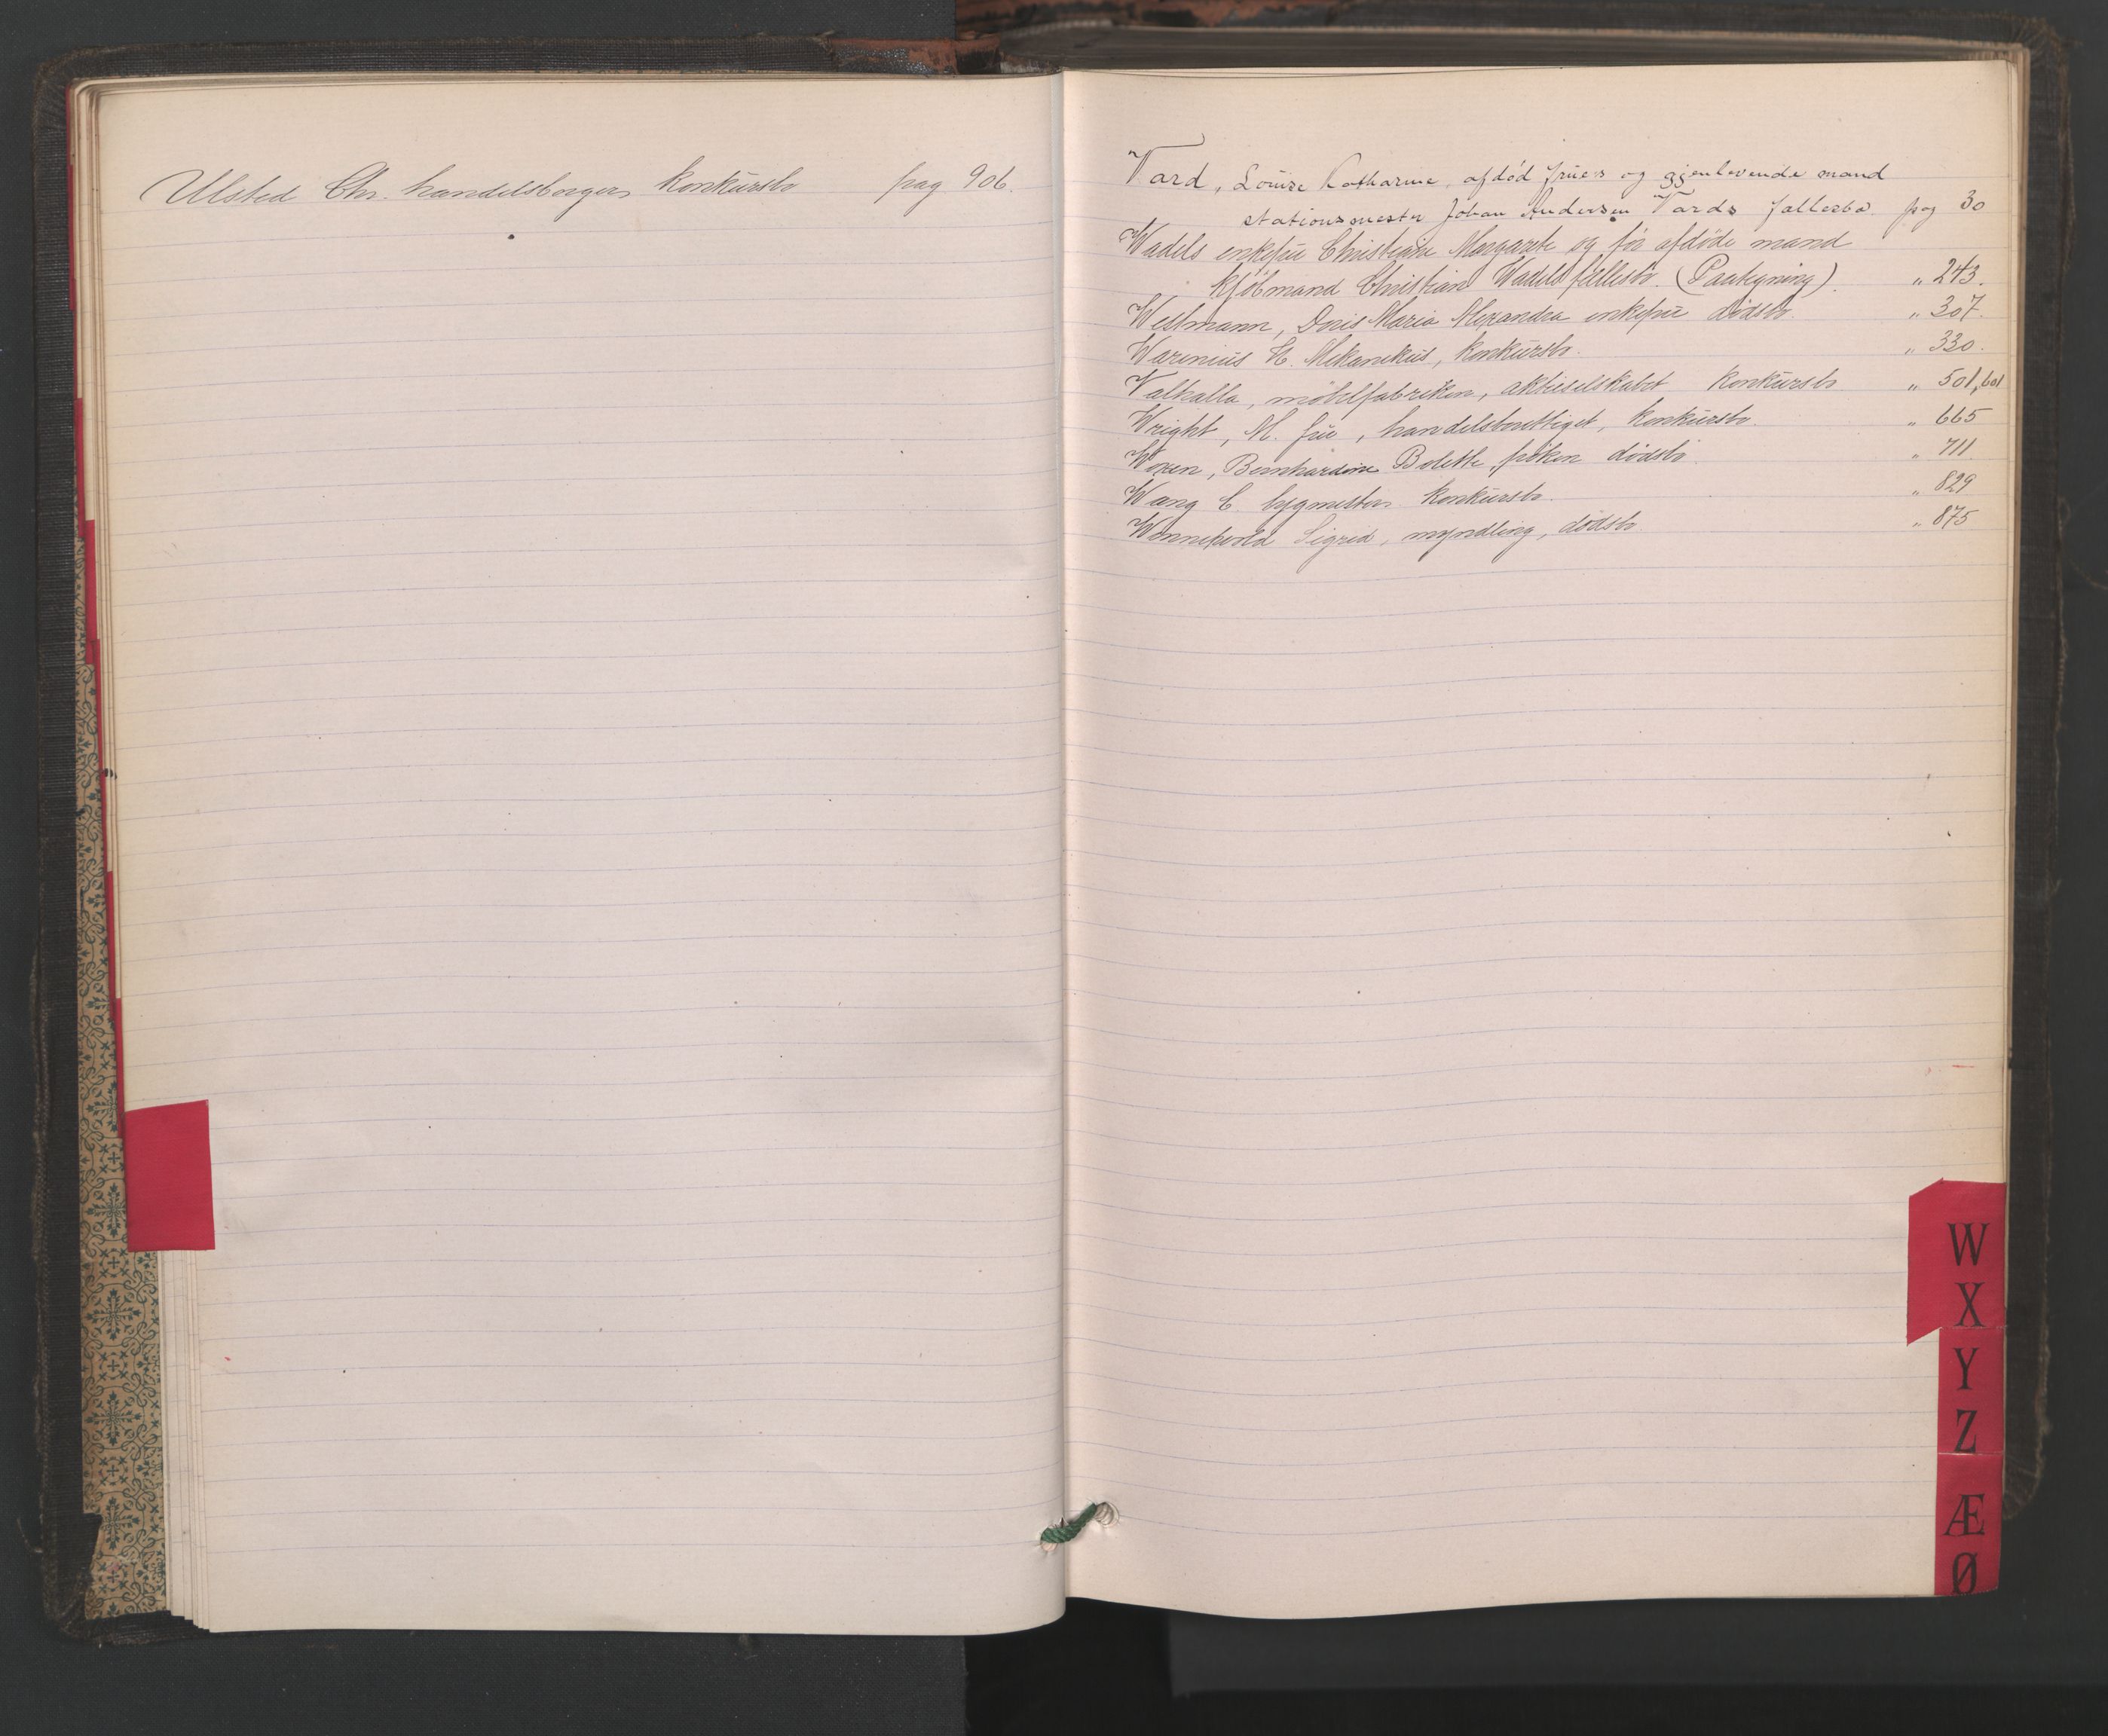 Ulsted Chr. handelsborgers konkursbo pag 906.
Vard, Louise Katharine, afdød frues og gjenlevende mand
stationsmester Johan Andersen Vards fællesbo. pag 30
Wadels enkefru Christiane Margarete og før afdøde mand
kjøbmand Christian Wadels fællesbo. (Paategning). " 243.
Westmann, Doris Maria Alexandra enkefru dødsbo. " 307.
Warenius H. Mekanikus, konkursbo. " 330.
Valhalla, møbelfabriken, aktieselskabet konkursbo " 501, 601
Wright, M. frue, handelsberettiget, konkursbo. " 665
Woxen, Bernhardine Bolette, frøken dødsbo. " 711
Wang C. bygmesters konkursbo. " 829
Sigrid, myndling, dødsbo " 875
W
X
Y
Z
Æ
Ø